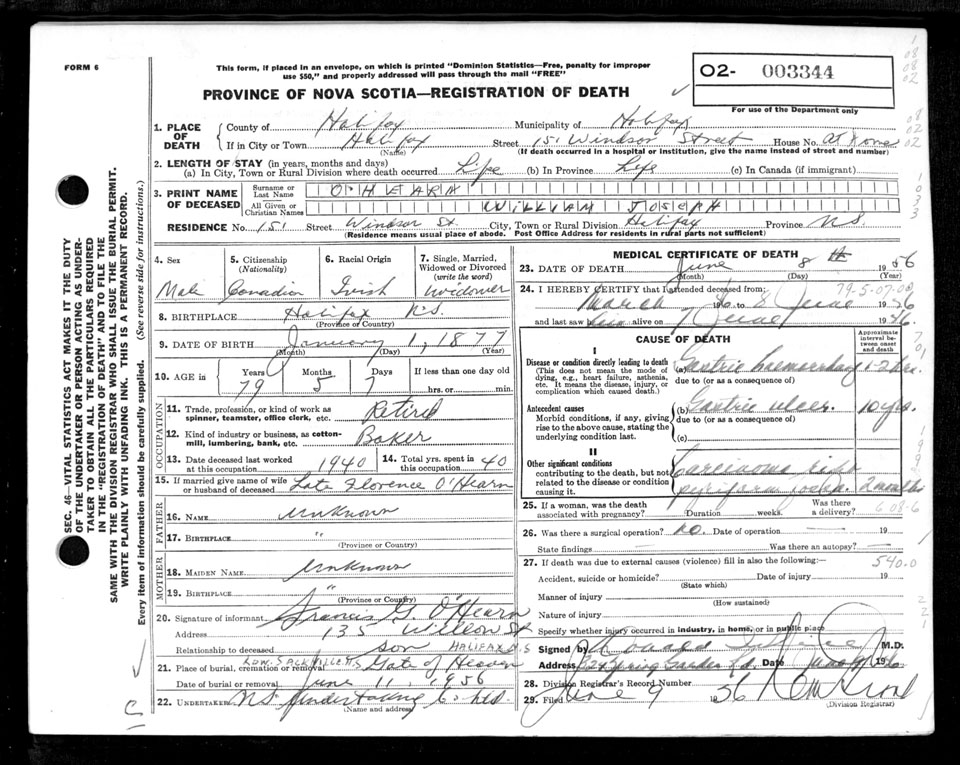 FORM 6
This form, if placed in an envelope, on which is printed "Dominion Statistics—Free, penalty for improper
use $50," and properly addressed will pass through the mail "FREE"
02- 003344
For use of the Department only
PROVINCE OF NOVA SCOTIA—REGISTRATION OF DEATH
SEC. 46—VITAL STATISTICS ACT MAKES IT THE DUTY
OF THE UNDERTAKER OR PERSON ACTING AS UNDER-
TAKER TO OBTAIN ALL THE PARTICULARS REQUIRED
IN THE "REGISTRATION OF DEATH" AND TO FILE THE
SAME WITH THE DIVISION REGISTRAR WHO SHALL ISSUE THE BURIAL PERMIT.
WRITE PLAINLY WITH UNFADING INK. THIS IS A PERMANENT RECORD.
Every item of information should be carefully supplied. (See reverse side for instructions.)
1. PLACE OF DEATH
County of Halifax Municipality of Halifax
If in City or Town Halifax Street 151 Windsor Street House No. At Home
(Name) (If death occurred in a hospital or institution, give the name instead of street and number)
2. LENGTH OF STAY (in years, months and days)
(a) In City, Town or Rural Division where death occurred Life (b) In Province Life (c) In Canada (if immigrant)
3. PRINT NAME OF DECEASED
Surname or Last Name O'HEARN
All Given or Christian Names WILLIAM JOSEPH
RESIDENCE No. 151 Street Windsor St. City, Town or Rural Division Halifax Province N.S.
(Residence means usual place of abode. Post Office Address for residents in rural parts not sufficient)
4. Sex 5. Citizenship (Nationality) 6. Racial Origin 7. Single, Married, Widowed or Divorced (write the word)
Male Canadian Irish Widower
8. BIRTHPLACE Halifax N.S.
(Province or Country)
9. DATE OF BIRTH January 1, 1877
(Month) (Day) (Year)
10. AGE in Years Months Days If less than one day old
79 5 7 hrs. or min.
OCCUPATION
11. Trade, profession, or kind of work as spinner, teamster, office clerk, etc. Retired
12. Kind of industry or business, as cotton-mill, lumbering, bank, etc. Baker
13. Date deceased last worked at this occupation 1940 14. Total yrs. spent in this occupation 40
15. If married give name of wife or husband of deceased Late Florence O'Hearn
FATHER
16. NAME Unknown
17. BIRTHPLACE "
(Province or Country)
MOTHER
18. MAIDEN NAME Unknown
19. BIRTHPLACE "
(Province or Country)
20. Signature of informant Francis G. O'Hearn
Address 135 Willow St
HALIFAX N S
Relationship to deceased son
21. Place of burial, cremation or removal LOW. SACKVILLE N.S. Gate of Heaven
Date of burial or removal June 11, 1956
22. UNDERTAKER N.S. Undertaking Co. Ltd
(Name and address)
MEDICAL CERTIFICATE OF DEATH
23. DATE OF DEATH June 8 th 1956
(Month) (Day) (Year)
79-5-07-0
24. I HEREBY CERTIFY that I attended deceased from:
March to 8 June 1956
and last saw him alive on June 1956
CAUSE OF DEATH
Approximate interval between onset and death
I
Disease or condition directly leading to death
(This does not mean the mode of dying, e.g., heart failure, asthenia, etc. It means the disease, injury, or complication which caused death.)
(a) Gastric haemorrhage 1-2 hrs.
due to (or as a consequence of)
Antecedent causes
Morbid conditions, if any, giving rise to the above cause, stating the underlying condition last.
(b) Gastric ulcer. 10 yrs.
due to (or as a consequence of)
(c)
II
Other significant conditions
contributing to the death, but not related to the disease or condition causing it.
Carcinoma right
pyriform fossa. 2 months
25. If a woman, was the death associated with pregnancy? Duration weeks. Was there a delivery?
26. Was there a surgical operation? no. Date of operation — 19
State findings — Was there an autopsy? —
27. If death was due to external causes (violence) fill in also the following: 540.0
Accident, suicide or homicide? Date of injury 19
(State which)
Manner of injury
(How sustained)
Nature of injury
Specify whether injury occurred in industry, in home, or in public place
Signed by M.D.
Address Spring Garden Rd. Date June 1956
28. Division Registrar's Record Number
29. Filed June 9 1956
(Division Registrar)